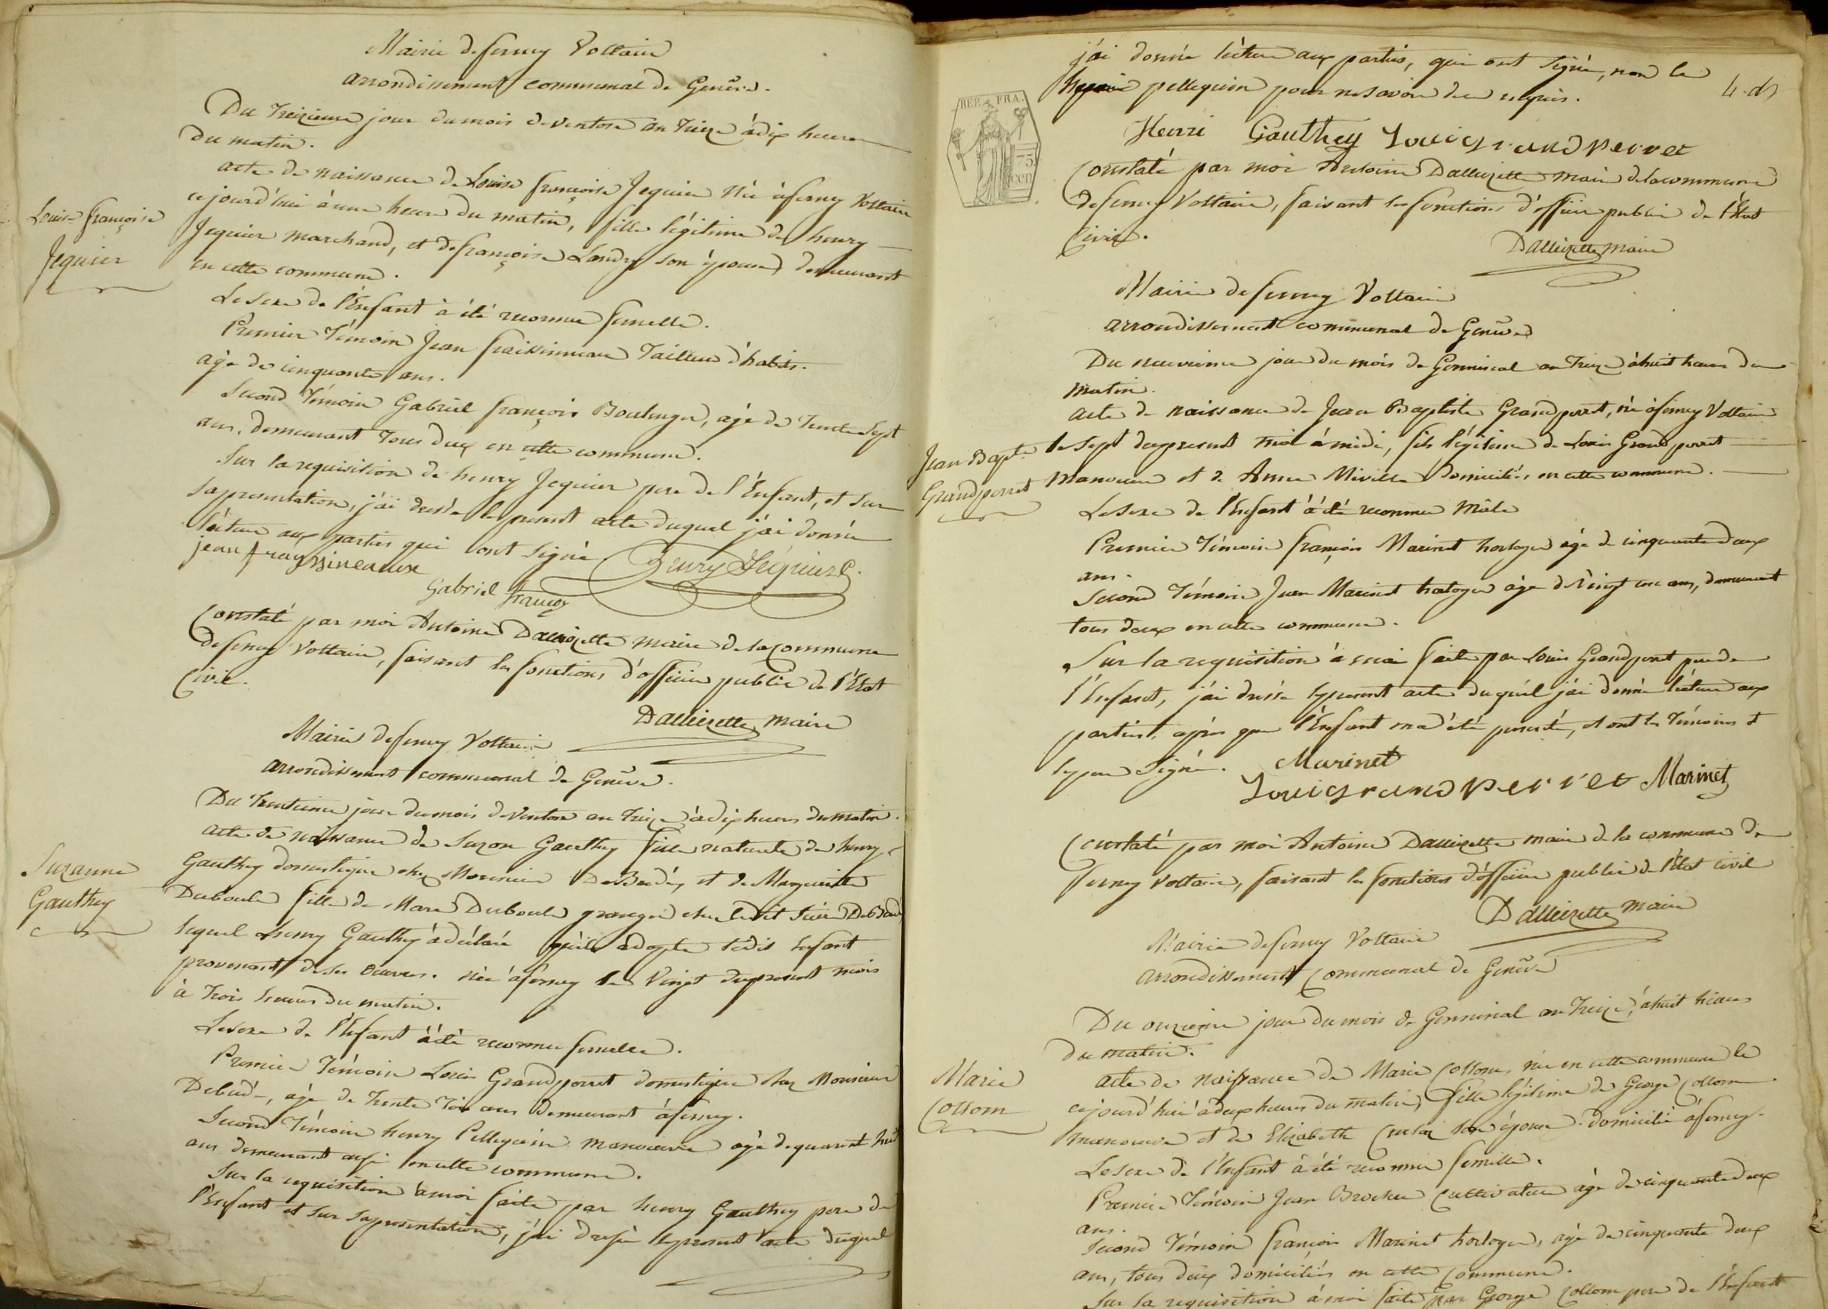 Mairie de ferney Voltaire
arrondissement communal de Genève.
Du treizieme jour du mois de ventose an treize à dix heures
du matin.
acte de naissance de Louise françoise Jequier née à ferney Voltaire
cejourd'hui à une heure du matin, fille légitime de henry
Louise françoise
Jequier
Jequier marchand, et de françoise Landry son épouse demeurant
en cette commune.
Le sexe de l'Enfant à été reconnu femelle.
Premier Témoin Jean fraissinneau Tailleur d'habits.
agé de cinquante ans.
Second Témoin Gabriel françois Boulenger, agé de Trente Sept
ans, demeurant Tous deux en cette commune.
Sur la requisition de henry Jequier pere de l'Enfant, et sur
sa presentation, j'ai dressé le present acte duquel j'ai donné
lécture aux parties qui ont signé
jean frayssineaux
Henry Jéquier
Gabriel françois
Constaté par moi Antoine Dallizette maire de la commune
de ferney Voltaire, faisant les fonctions d'officier public de l'Etat
Civil.
Dallizette maire
Mairie de ferney Voltaire
arrondissement communal de Genève.
Du trentieme jour du mois de ventose an treize à dix heures du matin.
acte de naissance de Suzon Gauthey fille naturelle de henry
Suzanne
Gauthey
Gauthey domestique chez Monsieur DeBudé, et de Marguerite
Duboule fille de Marc Duboule granger chez ledit Sieur DeBudé
lequel henry Gauthey à déclaré qu'il adopte ledit Enfant
provenant de ses œuvres. née à ferney le Vingt du present mois
à trois heures du matin.
Le sexe de l'Enfant à été reconnu femelle.
Premier Témoin Louis Grandperret domestique chez Monsieur
Debudé, agé de trente trois ans demeurant à ferney.
Second Témoin henry Pelleguin manœuvre agé de quarante huit
ans demeurant aussi en cette commune.
Sur la requisition à moi faite par henry Gauthey pere de
l'Enfant et sur sa presentation, j'ai dressé le present acte duquel
j'ai donné lécture aux parties, qui ont signé, non le
pelleguin pour ne savoir de ce requis.
REP. FRA.
75
CEN
Henri Gauthey Louis grandperret
Constaté par moi Antoine Dallizette maire de la commune
de ferney Voltaire, faisant les fonctions d'officier public de l'État
Civil.
Dallizette maire
Mairie de ferney Voltaire
arrondissement communal de Genève
Du neuvieme jour du mois de Germinal an treize à huit heures du
matin.
acte de naissance de Jean Baptiste Grandperret, né à ferney Voltaire
Jean Bapte
Grandperret
le sept du present mois à midi, fils légitime de Louis Grandperret
manœuvre et de Anne domiciliés en cette commune.
Le sexe de l'Enfant à été reconnu Mâle
Premier Témoin françois Marinet horloger agé de cinquante deux
ans.
Second Témoin Jean Marinet horloger agé de Vingt un ans, demeurant
tous deux en cette commune.
Sur la requisition à moi faite par Louis Grandperret pere de
l'Enfant, j'ai dressé le present acte duquel j'ai donné lécture aux
parties après que l'Enfant m'a été presenté, et ont les Témoins et
le pere signé. Marinet
Louis grandperret Marinet
Constaté par moi Antoine Dallizette maire de la commune de
ferney Voltaire, faisant les fonctions d'officier public de l'Etat civil
Dallizette maire
Mairie de ferney Voltaire
arrondissement Communal de Genève
Du onzieme jour du mois de Germinal an treize, à huit heures
du matin.
acte de naissance de Marie Cottom, née en cette commune le
Marie
Cottom
cejourd'hui à deux heures du matin, fille légitime de George Cottom
manœuvre et de Elizabeth son épouse domicilié à ferney.
Le sexe de l'Enfant à été reconnu femelle.
Premier Témoin Jean Brochu Cultivateur agé de cinquante deux
ans.
Second Témoin françois Marinet horloger, agé de cinquante deux
ans, tous deux domiciliés en cette Commune.
Sur la requisition à moi faite par George Cottom pere de l'Enfant